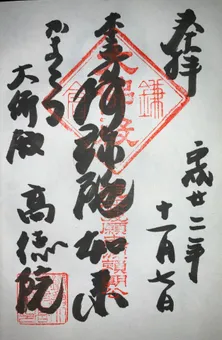 奉拝
平成廿二年
十一月七日
本尊阿弥陀如来
かまくら
大御殿
高徳院